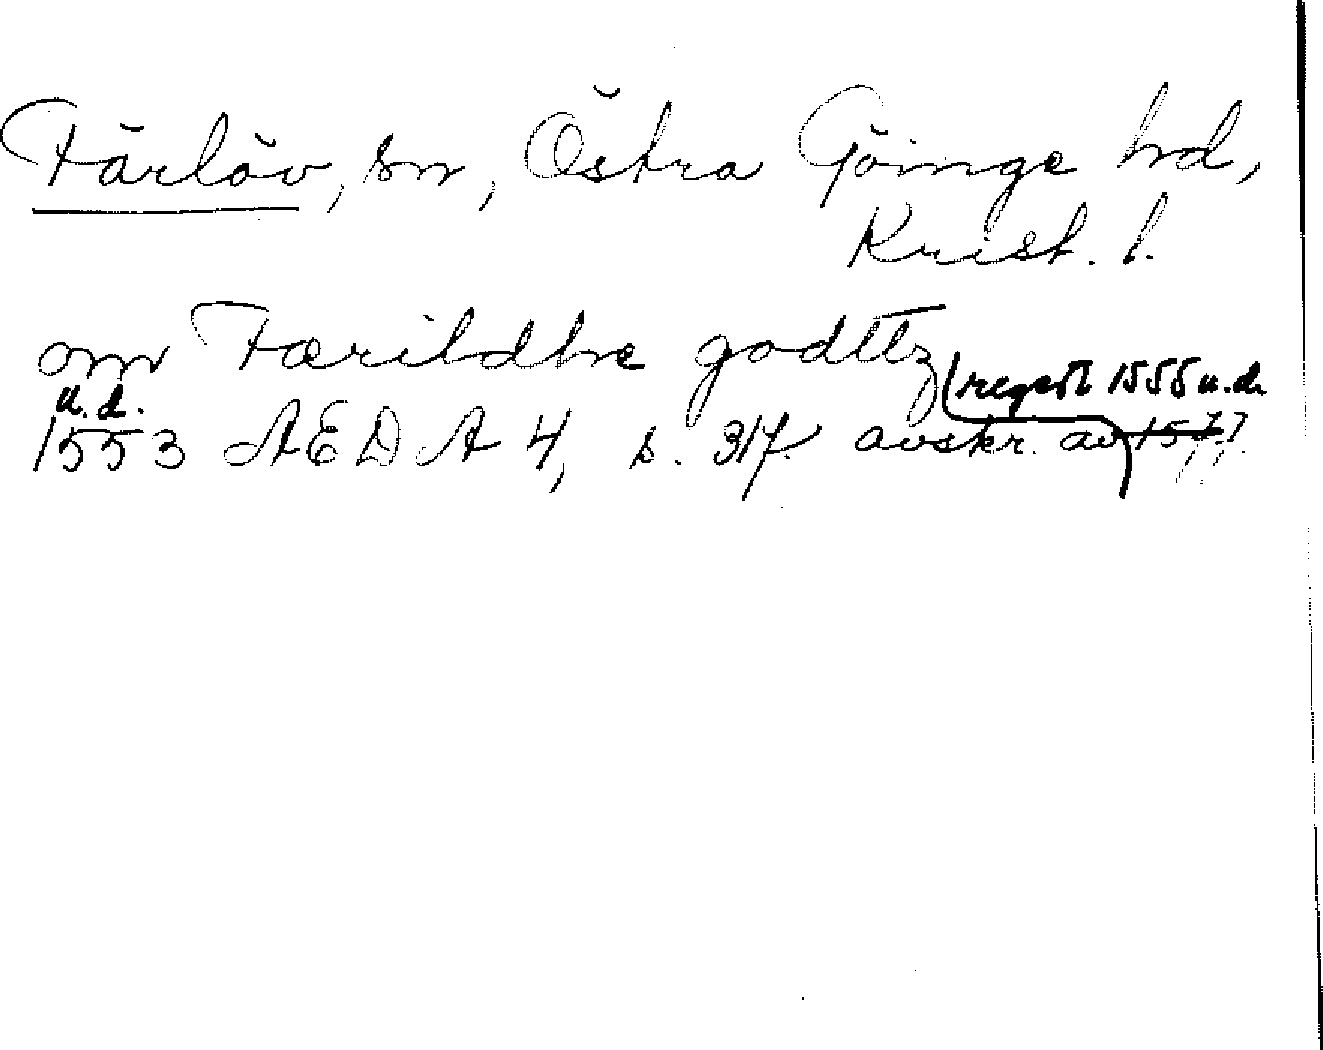 Färlöv, sn, Östra Göinge hd,
Krist. l.
om Færildhe godttz
(regest 1555 u.d.
u.d.
1553 ÆDA 4, s. 317. avskr. av 1577)